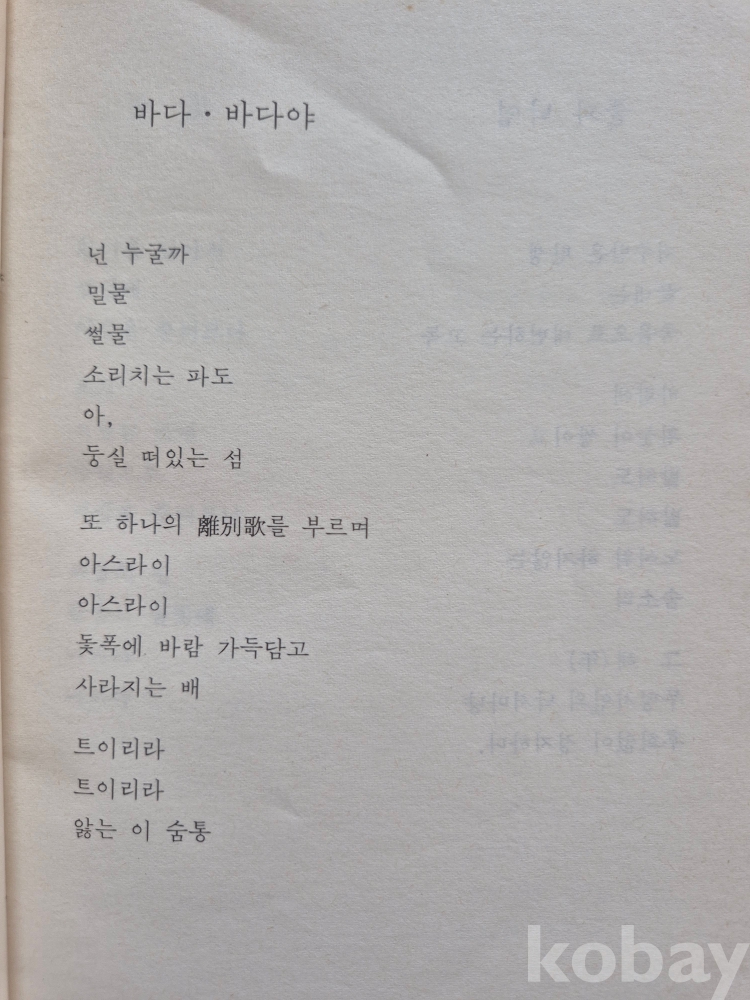 바다·바다야
넌 누굴까
밀물
썰물
소리치는 파도
아,
둥실 떠있는 섬
또 하나의 離別歌를 부르며
아스라이
아스라이
돛폭에 바람 가득담고
사라지는 배
트이리라
트이리라
앓는 이 숨통
kobay